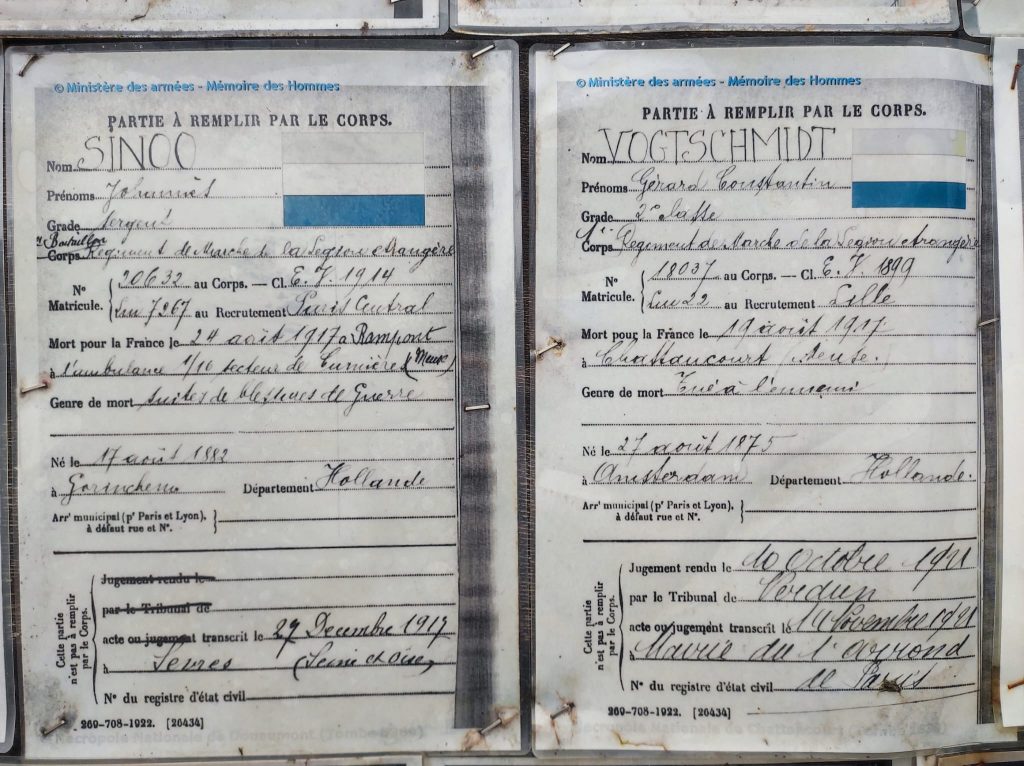 © Ministère des armées - Mémoire des Hommes
PARTIE À REMPLIR PAR LE CORPS.
Nom SINOO
Prénoms Johannès
Grade Sergent
Bataillon
Corps Régiment de Marche de la Légion etrangère
N° Matricule. 20632 au Corps. — Cl. E. V. 1914
7267 au Recrutement Paris Central
Mort pour la France le 24 août 1917 à Rampont
à l'ambulance 1/10 secteur de Cumières (Meuse)
Genre de mort suites de blessures de Guerre
Né le 17 août 1882
à Gorinchem Département Hollande
Arr' municipal (p' Paris et Lyon),
à défaut rue et N°.
Cette partie n'est pas à remplir par le Corps.
Jugement rendu le
par le Tribunal de
acte ou jugement transcrit le 27 Decembre 1917
à Sevres (Seine et Oise)
N° du registre d'état civil
269-708-1922. [26434]
Nécropole Nationale de Douaumont
© Ministère des armées - Mémoire des Hommes
PARTIE À REMPLIR PAR LE CORPS.
Nom VOGTSCHMIDT
Prénoms Gérard Constantin
Grade 2e classe
Corps Regiment de Marche de la Legion etrangère
N° Matricule. 18037 au Corps. — Cl. E. V. 1899
22 au Recrutement Lille
Mort pour la France le 19 août 1917
à Chattancourt (Meuse.
Genre de mort Tué à l'ennemi
Né le 27 août 1875
à Amsterdam Département Hollande.
Arr' municipal (p' Paris et Lyon),
à défaut rue et N°.
Cette partie n'est pas à remplir par le Corps.
Jugement rendu le 20 Octobre 1921
par le Tribunal de Verdun
acte ou jugement transcrit le Novembre 1921
à Mairie du 1er Arrond
N° du registre d'état civil de Paris
269-708-1922. [26434]